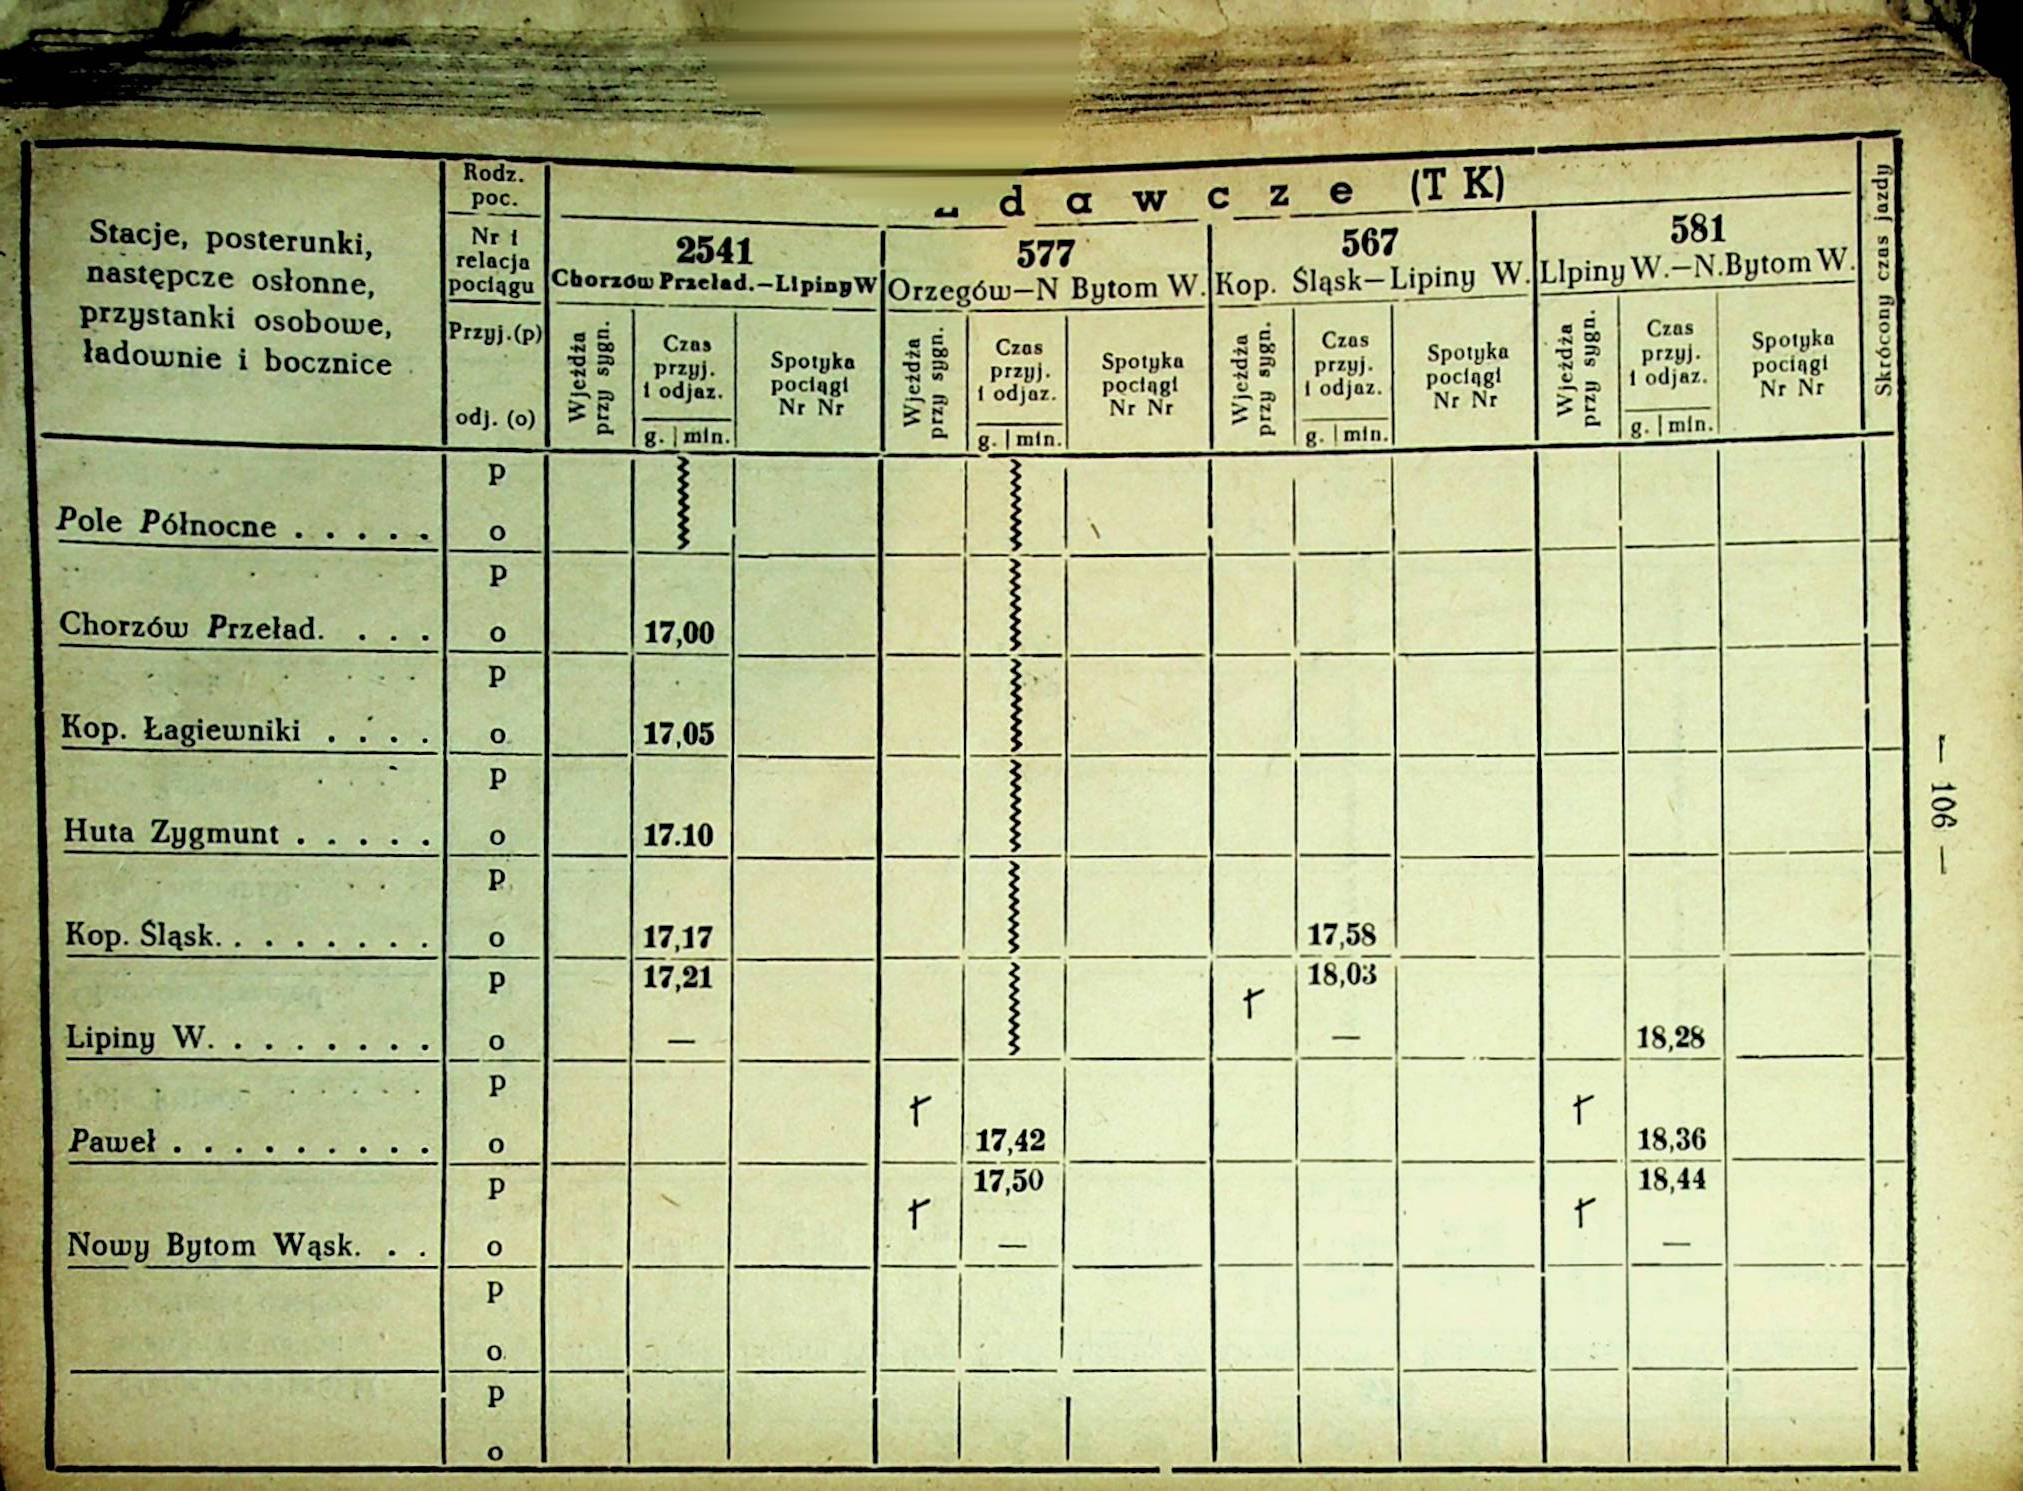 Stacje, posterunki,
następcze osłonne,
przystanki osobowe,
ładownie i bocznice
Rodz.
poc.
Nr i
relacja
pociągu
Przyj.(p)
odj. (o)
d a w c z e (T K)
2541
Chorzów Przeład.—Lipiny W
577
Orzegów—N Bytom W.
567
Kop. Śląsk—Lipiny W.
581
Lipiny W.—N.Bytom W.
Skrócony czas jazdy
Wjeżdża
przy sygn.
Czas
przyj.
i odjaz.
g. | min.
Spotyka
pociągi
Nr Nr
Wjeżdża
przy sygn.
Czas
przyj.
i odjaz.
g. | min.
Spotyka
pociągi
Nr Nr
Wjeżdża
przy sygn.
Czas
przyj.
i odjaz.
g. | min.
Spotyka
pociągi
Nr Nr
Wjeżdża
przy sygn.
Czas
przyj.
i odjaz.
g. | min.
Spotyka
pociągi
Nr Nr
p
Pole Północne . . . . . o
p
Chorzów Przeład. . . . o 17,00
p
Kop. Łagiewniki . . . . o 17,05
p
Huta Zygmunt . . . . . o 17.10
p
Kop. Śląsk. . . . . . . . o 17,17 17,58
p 17,21 18,03
Lipiny W. . . . . . . . o — — 18,28
p
Paweł . . . . . . . . . o 17,42 18,36
p 17,50 18,44
Nowy Bytom Wąsk. . . o — —
p
o
p
o
— 106 —